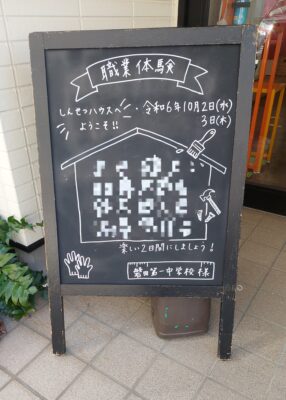 職業体験
しんせつハウスへ
ようこそ!!
・令和6年10月2日(水)
3日(木)
楽しい2日間にしましょう!
磐田第一中学校様